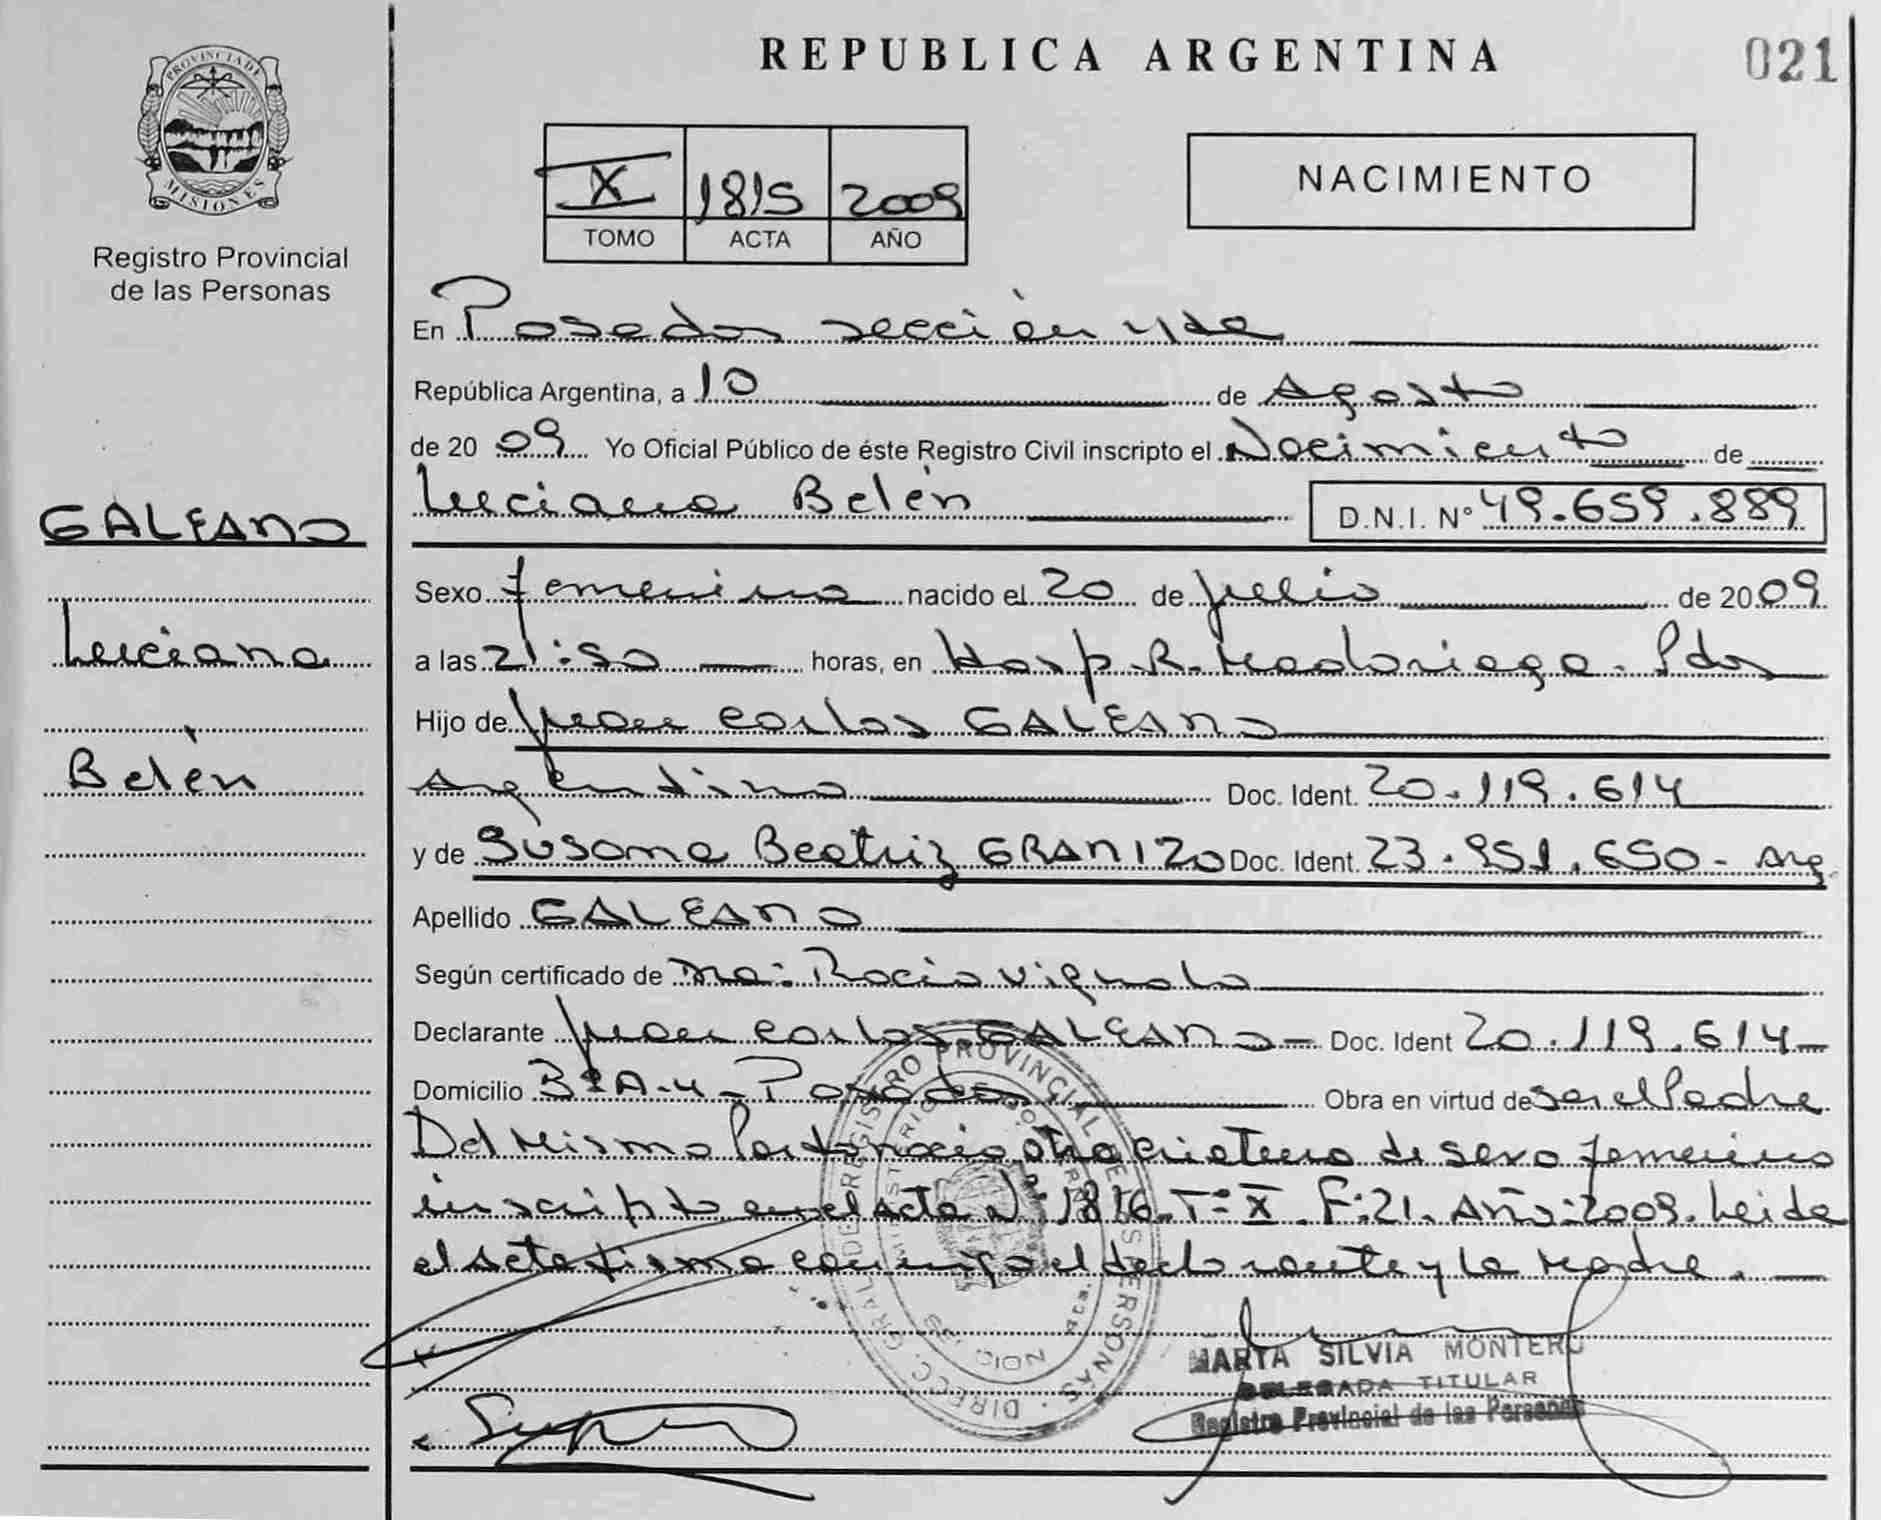 REPUBLICA ARGENTINA
021
PROVINCIA DE
MISIONES
Registro Provincial
de las Personas
X 1815 2009
TOMO ACTA AÑO
NACIMIENTO
GALEANO
Luciana
Belén
En Posadas sección 4ta
República Argentina, a 10 de Agosto
de 2009 Yo Oficial Público de éste Registro Civil inscripto el Nacimiento de
Luciana Belén D.N.I. N° 49.659.889
Sexo femenino nacido el 20 de julio de 2009
a las 21:50 horas, en Hosp. R. Madariaga. Pdas
Hijo de Juan Carlos GALEANO
Argentino Doc. Ident. 20.119.614
y de Susana Beatriz GRANIZO Doc. Ident. 23.951.650 - Arg.
Apellido GALEANO
Según certificado de Dra: Rocio Vignola
Declarante Juan Carlos GALEANO - Doc. Ident 20.119.614 -
Domicilio - Posadas Obra en virtud de ser el Padre
Del Mismo Parto nacio otra criatura de sexo femenino
inscripto en el acta Nº 1816. T: X. F: 21. Año: 2009. Leida
el Acta firma conmigo el declarante y la Madre. -
DIRECC. GRAL DE REGISTRO PROVINCIAL DE LAS PERSONAS
MINISTERIO DE GOBIERNO
MISIONES
MARTA SILVIA MONTERO
DELEGADA TITULAR
Registro Provincial de las Personas